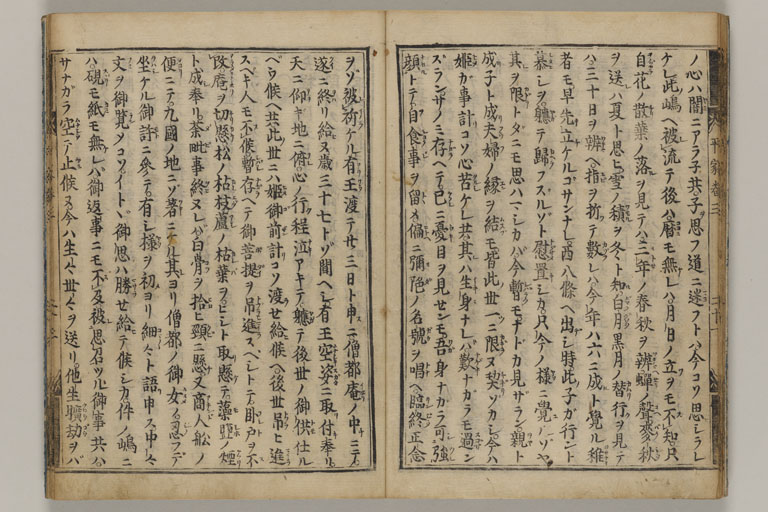 ノ心ハ闇ニアラ子共子思フ道ニ迷フトハ今コソ思シラレ
ケレ此嶋ヘ被流テ後ハ暦モ無レハ月日ノ立ヲモ不知只
自花ノ散葉ノ落ヲ見テハ三年ノ春秋ヲ辨蟬ノ聲麥秋
ヲ送ハ夏ト思ヒ雪ノ積ヲ冬ト知白月黒月ノ替行ヲ見テ
ハ三十日ヲ辨ヘ指ヲ折テ數レハ今年ハ六ニ成ト覺ル稚
者モ早先立ケルコサンナレ西八條ヘ出シ時此子ガ行ント
慕シヲ軈テ歸フスルゾト慰置シカ只今ノ様ニ覺ルソヤ
其ヲ限トタニモ思ハマシカハ今暫モナトカ見サラン親ト
成子ト成夫婦ノ縁ヲ結モ皆此世一ニ限ヌ契ソカシ
姫ガ事計コソ心苦ケレ共其ハ生身ナレハ歎ナカラモ過ン
スランサノミ存ヘテ己ニ憂目ヲ見センモ吾身ナカラ可強
顔トテ自食事ヲ留メ偏ニ彌陀ノ名號ヲ唱ヘ臨終正念
ヲゾ被祈ケル有王渡テ廿三日ト申ニ僧都庵ノ中ニテ
遂ニ終リ給ヌ歳三十七トゾ聞ヘシ有王空姿ニ取付奉リ
天ニ仰キ地ニ俯心ノ行程泣アキテ軈テ後世ノ御供仕ル
ヘウ候ヘ共此世ニハ姫御前計コソ渡セ給候ヘ後世吊ヒ進
スヘキ人モ不候暫存ヘテ御菩提ヲ吊進スヘシトテ臥戸ヲ不
改庵ヲ切懸松ノ枯枝蘆ノ枯葉ヲヒシト取懸テ藻鹽ノ煙
ト成奉リ荼毗事終ヌレハ白骨ヲ拾ヒ頸ニ懸又商人船ノ
便ニテ九國ノ地ニソ著ニケル其ヨリ僧都ノ御女ノ忍テ
坐ケル御許ニ參テ有シ様ヲ初ヨリ細々ト語申ス中々
文ヲ御覽シテコソイトヽ御思ハ勝セ給テ候シカ件ノ嶋ニ
ハ硯モ紙モ無レハ御返事ニモ不及被思召ツル御事共ハ
サナガラ空テ止候ヌ今ハ生々世々ヲ送リ他生曠劫ヲバ
平家巻三